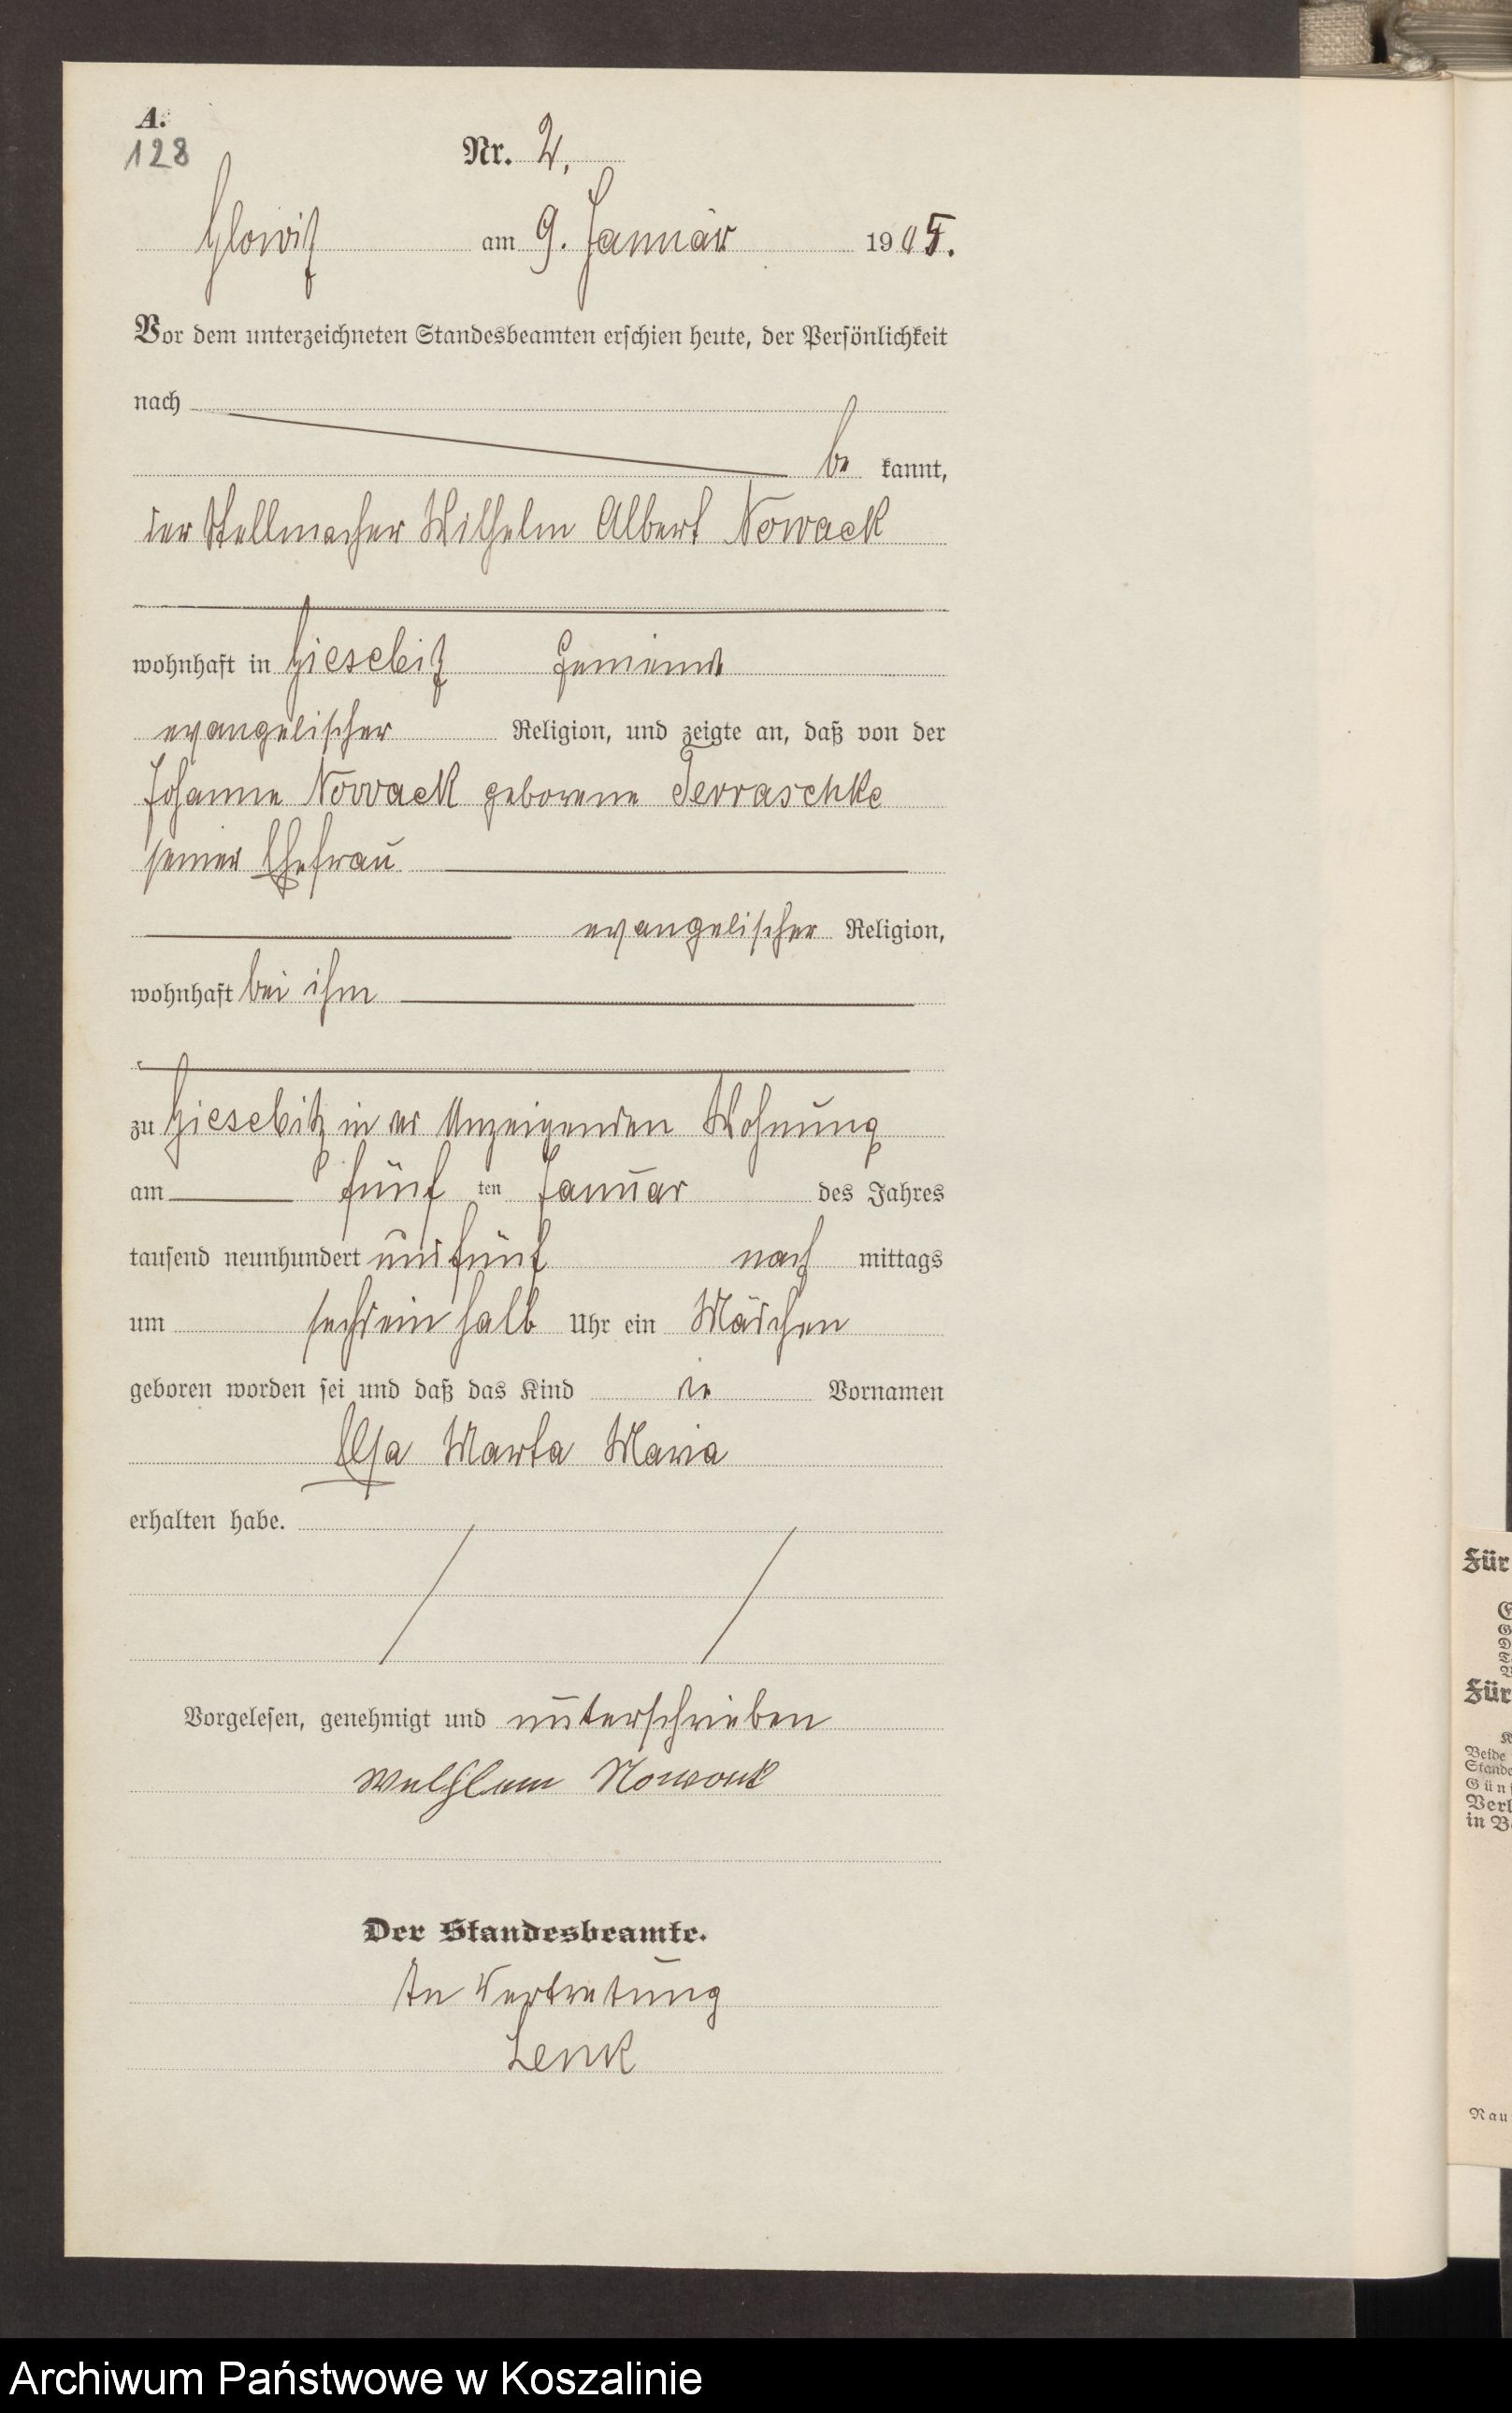 A.
128
Nr. 2.
Glowitz am 9. Januar 1905.
Vor dem unterzeichneten Standesbeamten erschien heute, der Persönlichkeit
nach
be kannt,
der Stellmacher Wilhelm Albert Nowack
wohnhaft in Giesebitz Gemeinde
evangelischer Religion, und zeigte an, daß von der
Johanne Nowack geborene Jerraschke
seiner Ehefrau
evangelischer Religion,
wohnhaft bei ihm
zu Giesebitz in der Anzeigenden Wohnung
am fünf ten Januar des Jahres
tausend neunhundert und fünf nach mittags
um sechs ein halb Uhr ein Mädchen
geboren worden sei und daß das Kind die Vornamen
Elsa Marta Maria
erhalten habe.
Vorgelesen, genehmigt und unterschrieben
Wilhelm Nowack
Der Standesbeamte.
In Vertretung
Lenk
Für
Für
Beide
Stande
Verl
in B
Nau
Archiwum Państwowe w Koszalinie